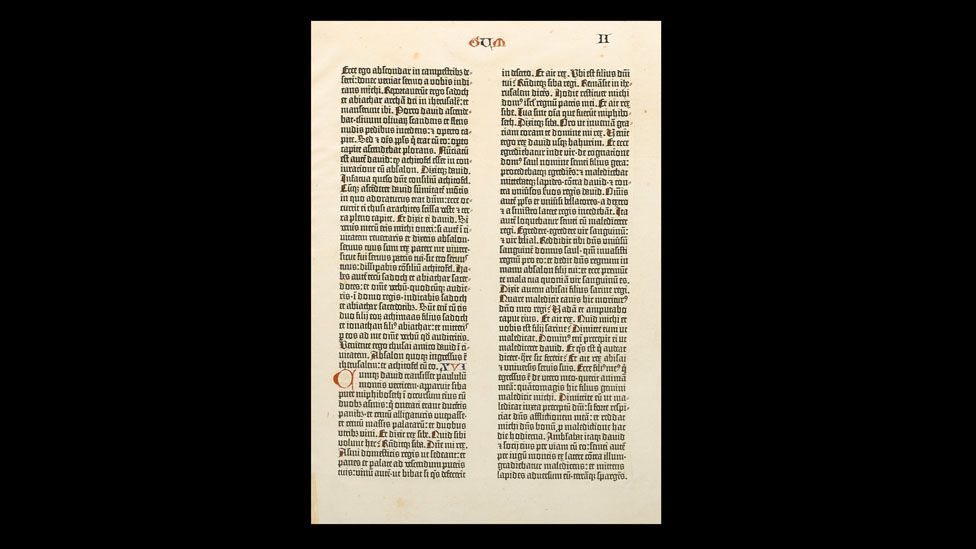 GUM
II
Ecce ego abscondar in campestribꝫ de-
serti: donec veniat sermo a vobis indi-
cans michi. Reportaverūt ergo sadoch
et abiathar archā dei in iherusalē: et
manserunt ibi. Porro david ascende-
bat clivum olivaꝝ scandens et flens
nudis pedibus incedens: ⁊ opto ca-
pite. Sed ⁊ om̄s ppl̄s q̄ erat cū eo: opto
capite ascendebat plorans. Nūciatū
est autē david: ꝙ achitofel esset in con-
iuratione cū absalon. Dixitqꝫ david.
Infatua queso dn̄e consiliū achitofel.
Cūqꝫ ascenderet david sūmitatē mōtis
in quo adoraturus erat dn̄m: ecce oc-
currit ei chusi arachites scissa veste ⁊ ter-
ra pleno capite. Et dixit ei david. Si
veneris mecū eris michi oneri: si autē ī ci-
vitatem revertaris et dixeris absalon-
servus tuus sum rex patere me vivere-
sicut fui servus patris tui-sic ero servꝰ
tuus: dissipabis cōsiliū achitofel. Ha-
bes autē tecū sadoch et abiathar sacer-
dotes: et omē verbū-quodcūqꝫ audie-
ris-ī domo regis-indicabis sadoch
et abiathar sacerdotibꝫ. Sūt em̄ cū eis
duo filij eoꝝ achimaas filius sadoch
et ionathan filiꝰ abiathar: et mittetis
ꝑ eos ad me om̄e verbū qd̄ audieritis.
Veniente ergo chusai amico david ī ci-
vitatem. Absalon quoqꝫ ingressus ē
iherusalem: et achitofel cū eo. XVI
Cumqꝫ david transisset paululū
montis verticem-apparuit siba
puer miphiboseth ī occursum eius cū
duobꝫ asinis: q̄ onerati erant ducētis
panibꝫ-et centū alligaturis uvepasse-
et centū massis palataꝝ: et duobus
utribꝫ vini. Et dixit rex sibe. Quid sibi
volunt hec? Rn̄ditqꝫ siba. Dn̄e mi rex.
Asini domesticis regis ut sedeant: et
panes et palate ad vescendum pueris
tuis: vinū autē-ut bibat si q̄s defecerit
in deserto. Et ait rex. Ubi est filius dn̄i
tui? Rn̄ditqꝫ siba regi. Remāsit in ihe-
rusalem dicēs. Hodie restituet michi
domꝰ isrl̄ regnū patris mei. Et ait rex
sibe. Tua sint oīa que fuerūt miphibo-
seth. Dixitqꝫ siba. Oro ut inveniā gra-
tiam coram te domine mi rex. Venit
ergo rex david usqꝫ bahurim. Et ecce
egrediebatur inde vir-de cognatione
domꝰ saul nomine semei filius gera:
procedebatqꝫ egrediēs: ⁊ maledicebat
mittebatqꝫ lapides-cōtra david-⁊ con-
tra univsos svos regis david. Om̄is
autē ppl̄s et univsi bellatores-a dextro
⁊ a sinistro latere regis incedebāt. Ita
autē loquebatur semei cū malediceret
regi. Egredere-egredere vir sanguinū:
⁊ vir belial. Reddidit tibi dn̄s univsū
sanguinē domus saul-qm̄ invasisti
regnū pro eo: et dedit dn̄s regnum in
manu absalon filij tui: et ecce premūt
te mala tua quoniā vir sanguinū es.
Dixit autem abisai filius sarvie regi.
Quare maledicit canis hic morturꝰ
dn̄o meo regi? Vadā et amputabo
caput eius. Et ait rex. Quid michi et
vobis est filij sarvie? Dimitte eum ut
maledicat. Dominꝰ em̄ precepit ei ut
malediceret david. Et q̄s est q̄ audeat
dicere-q̄re sic fecerit? Et ait rex abisai
⁊ universis servis suis. Ecce filiꝰ meꝰ q̄
egressus ē de utero meo-querit animā
meā: quātomagis hic filius gemini
maledicit michi. Dimittite eū ut ma-
ledicat iuxta preceptū dn̄i: si forte respi-
ciat dn̄s afflictionem meā: et reddat
michi dn̄s bonū-ꝓ maledictione hac
die hodierna. Ambulabat itaqꝫ david
⁊ socij eius per viam cū eo: semei autē
per iugū montis ex latere cōtra illum-
gradiebatur maledicens: et mittens
lapides adversum eū-terrāqꝫ spargēs.